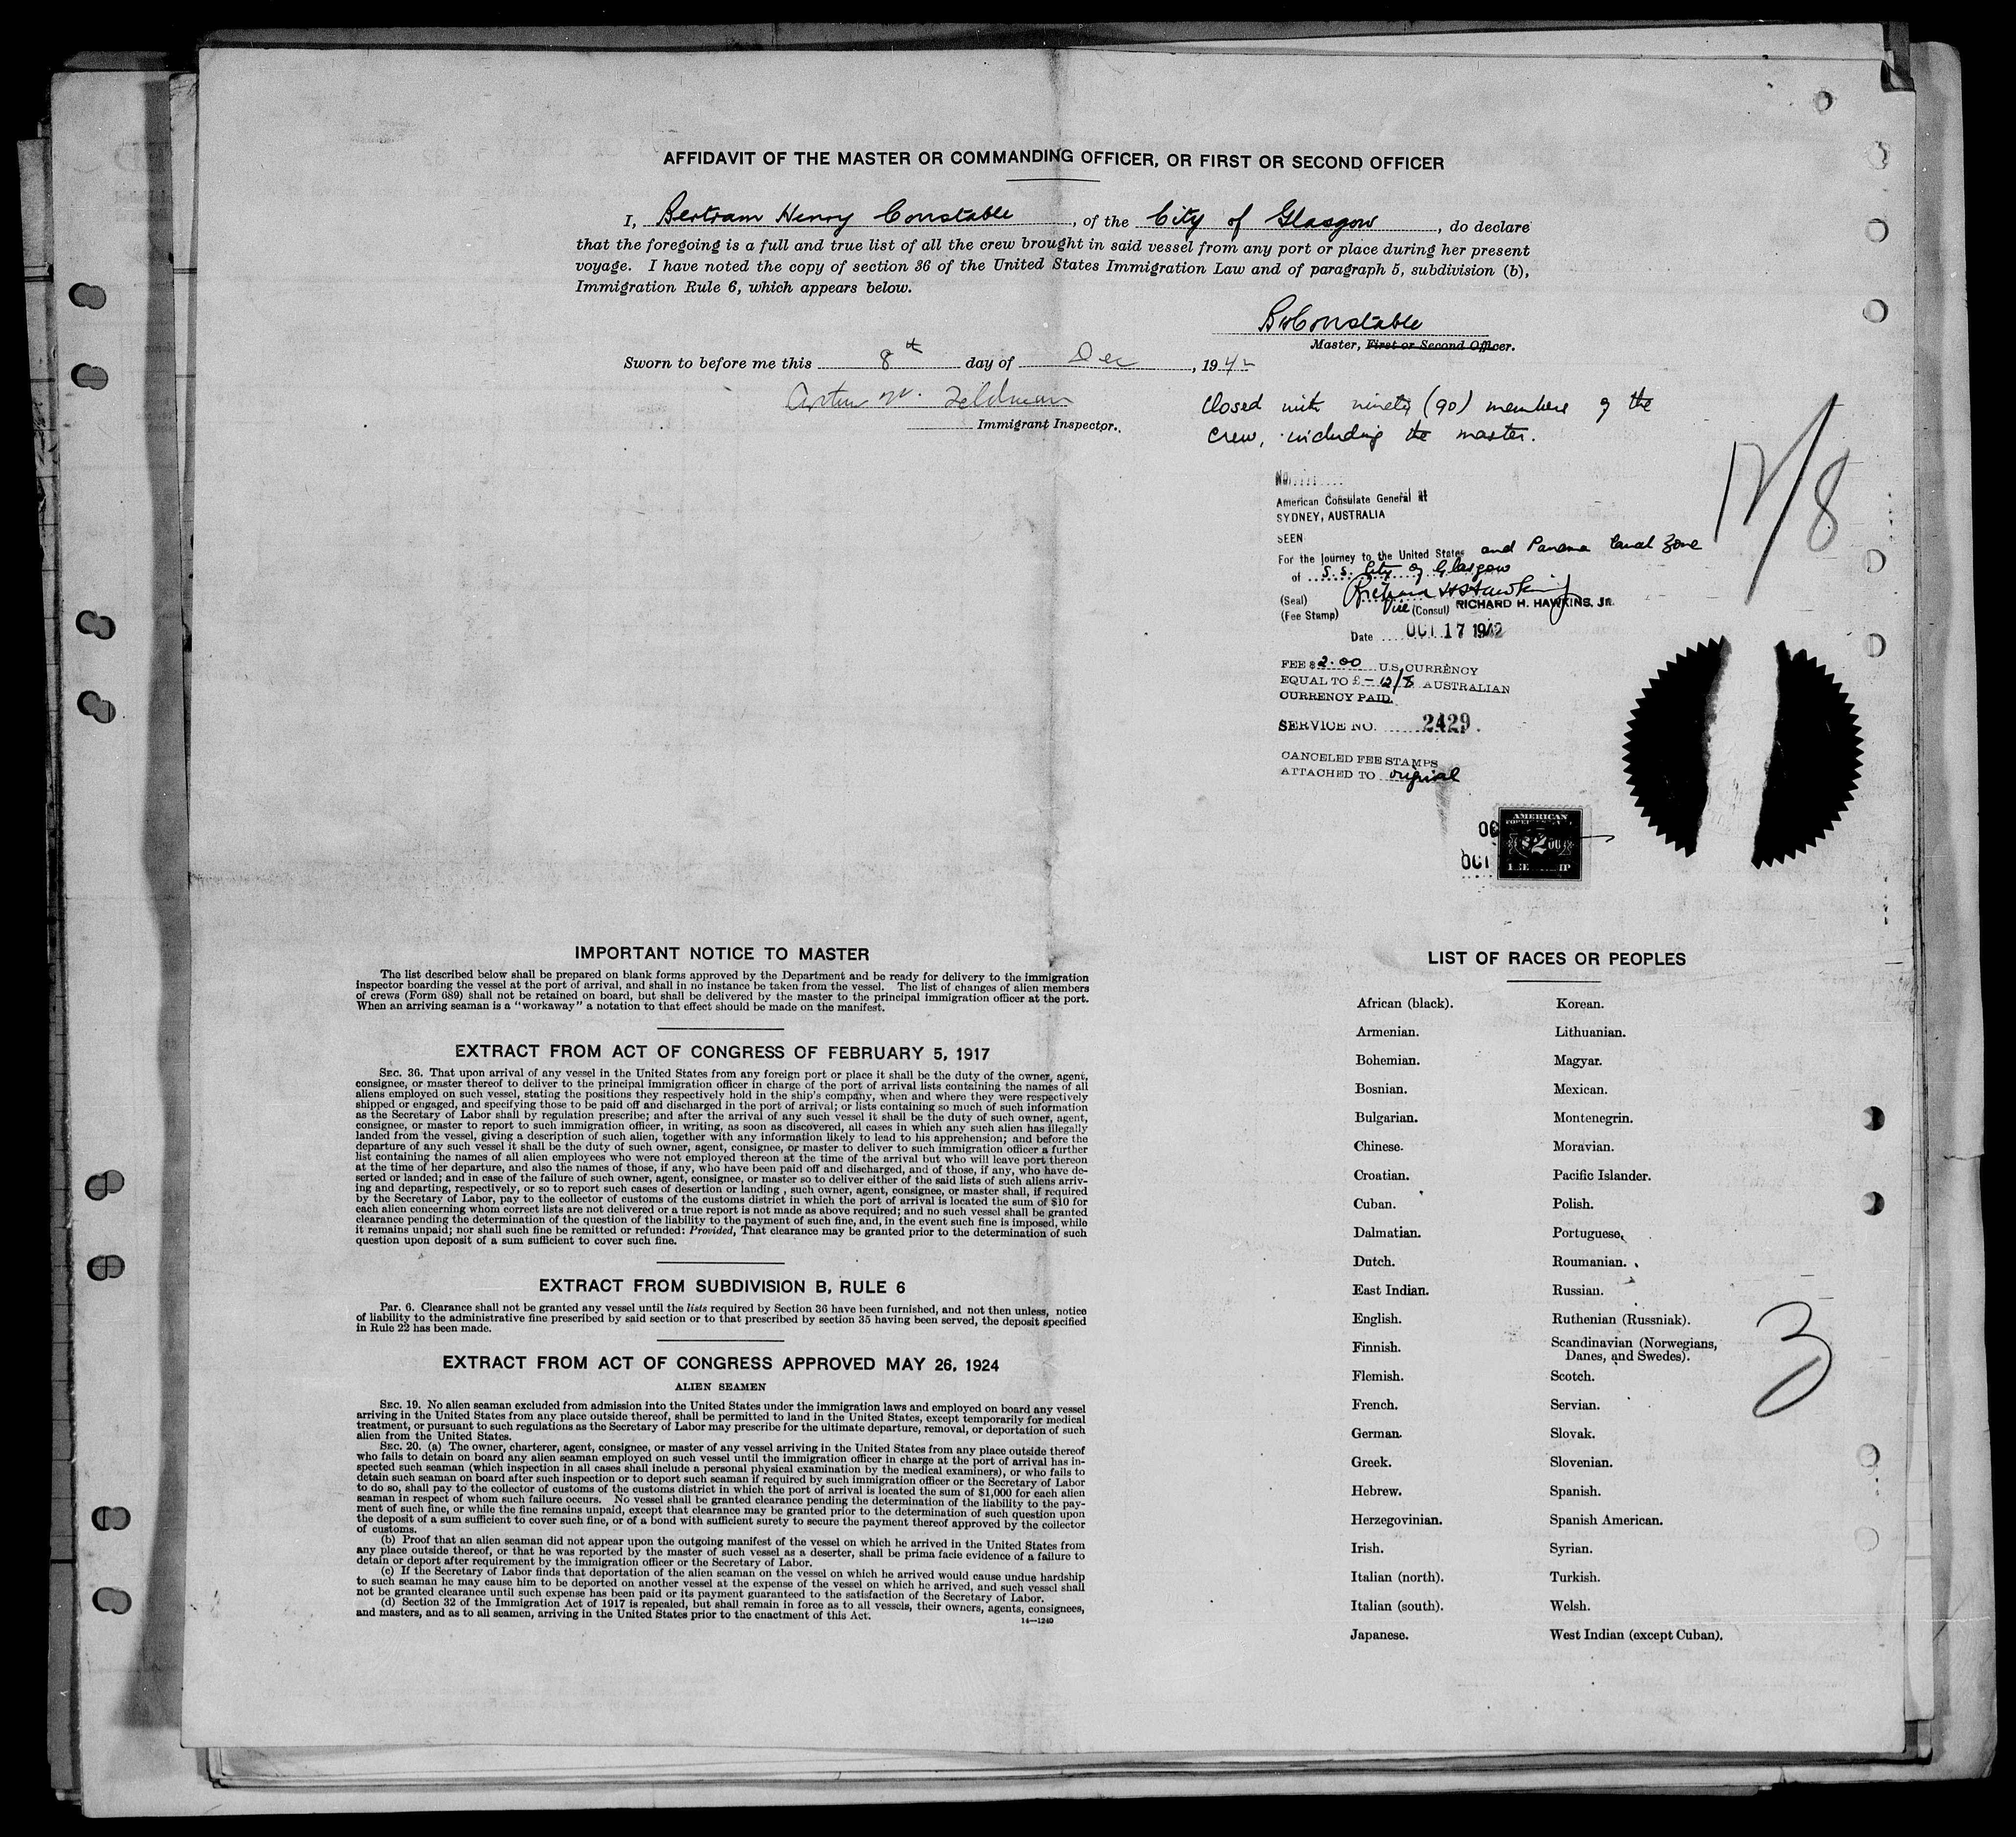 AFFIDAVIT OF THE MASTER OR COMMANDING OFFICER, OR FIRST OR SECOND OFFICER
I, Bertram Henry Constable, of the City of Glasgow, do declare
that the foregoing is a full and true list of all the crew brought in said vessel from any port or place during her present
voyage. I have noted the copy of section 36 of the United States Immigration Law and of paragraph 5, subdivision (b),
Immigration Rule 6, which appears below.
BHConstable
Master, First or Second Officer.
Sworn to before me this 8th day of Dec, 1942
Feldman
Immigrant Inspector.
Closed with ninety (90) members of the
crew, including the master.
12/8
No.
American Consulate General at
SYDNEY, AUSTRALIA
SEEN
For the Journey to the United States and Panama Canal Zone
of S.S. City of Glasgow
(Seal) Richard H Hawkins Jr
(Fee Stamp) Vice (Consul) RICHARD H. HAWKINS, Jr.
Date OCT 17 1942
FEE $2.00 U.S. CURRENCY
EQUAL TO £-12/8 AUSTRALIAN
CURRENCY PAID.
SERVICE NO. 2429.
CANCELED FEE STAMPS
ATTACHED TO original
AMERICAN
$2.00
OCT
IMPORTANT NOTICE TO MASTER
The list described below shall be prepared on blank forms approved by the Department and be ready for delivery to the immigration
inspector boarding the vessel at the port of arrival, and shall in no instance be taken from the vessel. The list of changes of alien members
of crews (Form 689) shall not be retained on board, but shall be delivered by the master to the principal immigration officer at the port.
When an arriving seaman is a "workaway" a notation to that effect should be made on the manifest.
EXTRACT FROM ACT OF CONGRESS OF FEBRUARY 5, 1917
SEC. 36. That upon arrival of any vessel in the United States from any foreign port or place it shall be the duty of the owner, agent,
consignee, or master thereof to deliver to the principal immigration officer in charge of the port of arrival lists containing the names of all
aliens employed on such vessel, stating the positions they respectively hold in the ship's company, when and where they were respectively
shipped or engaged, and specifying those to be paid off and discharged in the port of arrival; or lists containing so much of such information
as the Secretary of Labor shall by regulation prescribe; and after the arrival of any such vessel it shall be the duty of such owner, agent,
consignee, or master to report to such immigration officer, in writing, as soon as discovered, all cases in which any such alien has illegally
landed from the vessel, giving a description of such alien, together with any information likely to lead to his apprehension; and before the
departure of any such vessel it shall be the duty of such owner, agent, consignee, or master to deliver to such immigration officer a further
list containing the names of all alien employees who were not employed thereon at the time of the arrival but who will leave port thereon
at the time of her departure, and also the names of those, if any, who have been paid off and discharged, and of those, if any, who have de-
serted or landed; and in case of the failure of such owner, agent, consignee, or master so to deliver either of the said lists of such aliens arriv-
ing and departing, respectively, or so to report such cases of desertion or landing , such owner, agent, consignee, or master shall, if required
by the Secretary of Labor, pay to the collector of customs of the customs district in which the port of arrival is located the sum of $10 for
each alien concerning whom correct lists are not delivered or a true report is not made as above required; and no such vessel shall be granted
clearance pending the determination of the question of the liability to the payment of such fine, and, in the event such fine is imposed, while
it remains unpaid; nor shall such fine be remitted or refunded: Provided, That clearance may be granted prior to the determination of such
question upon deposit of a sum sufficient to cover such fine.
EXTRACT FROM SUBDIVISION B, RULE 6
Par. 6. Clearance shall not be granted any vessel until the lists required by Section 36 have been furnished, and not then unless, notice
of liability to the administrative fine prescribed by said section or to that prescribed by section 35 having been served, the deposit specified
in Rule 22 has been made.
EXTRACT FROM ACT OF CONGRESS APPROVED MAY 26, 1924
ALIEN SEAMEN
SEC. 19. No alien seaman excluded from admission into the United States under the immigration laws and employed on board any vessel
arriving in the United States from any place outside thereof, shall be permitted to land in the United States, except temporarily for medical
treatment, or pursuant to such regulations as the Secretary of Labor may prescribe for the ultimate departure, removal, or deportation of such
alien from the United States.
SEC. 20. (a) The owner, charterer, agent, consignee, or master of any vessel arriving in the United States from any place outside thereof
who fails to detain on board any alien seaman employed on such vessel until the immigration officer in charge at the port of arrival has in-
spected such seaman (which inspection in all cases shall include a personal physical examination by the medical examiners), or who fails to
detain such seaman on board after such inspection or to deport such seaman if required by such immigration officer or the Secretary of Labor
to do so, shall pay to the collector of customs of the customs district in which the port of arrival is located the sum of $1,000 for each alien
seaman in respect of whom such failure occurs. No vessel shall be granted clearance pending the determination of the liability to the pay-
ment of such fine, or while the fine remains unpaid, except that clearance may be granted prior to the determination of such question upon
the deposit of a sum sufficient to cover such fine, or of a bond with sufficient surety to secure the payment thereof approved by the collector
of customs.
(b) Proof that an alien seaman did not appear upon the outgoing manifest of the vessel on which he arrived in the United States from
any place outside thereof, or that he was reported by the master of such vessel as a deserter, shall be prima facie evidence of a failure to
detain or deport after requirement by the immigration officer or the Secretary of Labor.
(c) If the Secretary of Labor finds that deportation of the alien seaman on the vessel on which he arrived would cause undue hardship
to such seaman he may cause him to be deported on another vessel at the expense of the vessel on which he arrived, and such vessel shall
not be granted clearance until such expense has been paid or its payment guaranteed to the satisfaction of the Secretary of Labor.
(d) Section 32 of the Immigration Act of 1917 is repealed, but shall remain in force as to all vessels, their owners, agents, consignees,
and masters, and as to all seamen, arriving in the United States prior to the enactment of this Act.
14—1240
LIST OF RACES OR PEOPLES
African (black). Korean.
Armenian. Lithuanian.
Bohemian. Magyar.
Bosnian. Mexican.
Bulgarian. Montenegrin.
Chinese. Moravian.
Croatian. Pacific Islander.
Cuban. Polish.
Dalmatian. Portuguese.
Dutch. Roumanian.
East Indian. Russian.
English. Ruthenian (Russniak).
Finnish. Scandinavian (Norwegians,
Danes, and Swedes).
Flemish. Scotch.
French. Servian.
German. Slovak.
Greek. Slovenian.
Hebrew. Spanish.
Herzegovinian. Spanish American.
Irish. Syrian.
Italian (north). Turkish.
Italian (south). Welsh.
Japanese. West Indian (except Cuban).
3